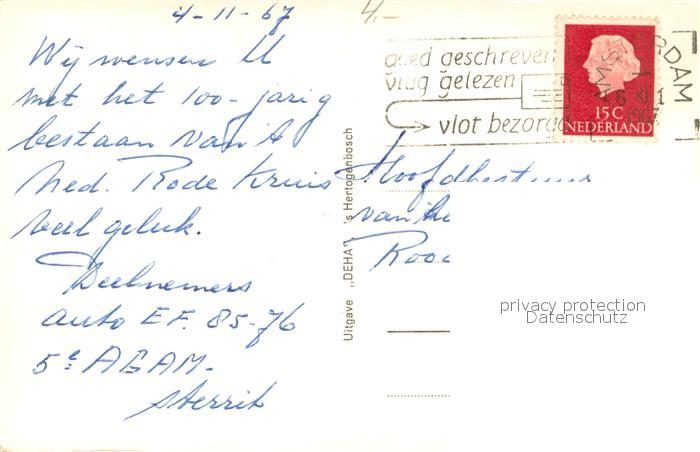 4-11-67
4.-
Wij wensen U
met het 100-jarig
bestaan van 't
Ned. Rode Kruis
veel geluk.
Deelnemers
auto EF. 85-76
5e AGAM-
sterrit
Uitgave „DEHA" 's Hertogenbosch
goed geschreven
vlug gelezen
vlot bezorgd
AMSTERDAM
15 C
NEDERLAND
Hoofdbestuur
van he
Rood
privacy protection
Datenschutz